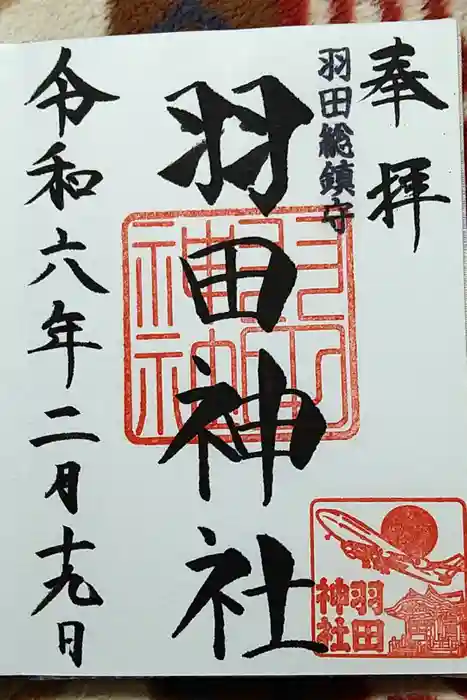 奉拝
羽田総鎮守
羽田神社
令和六年二月十九日
羽田
神社